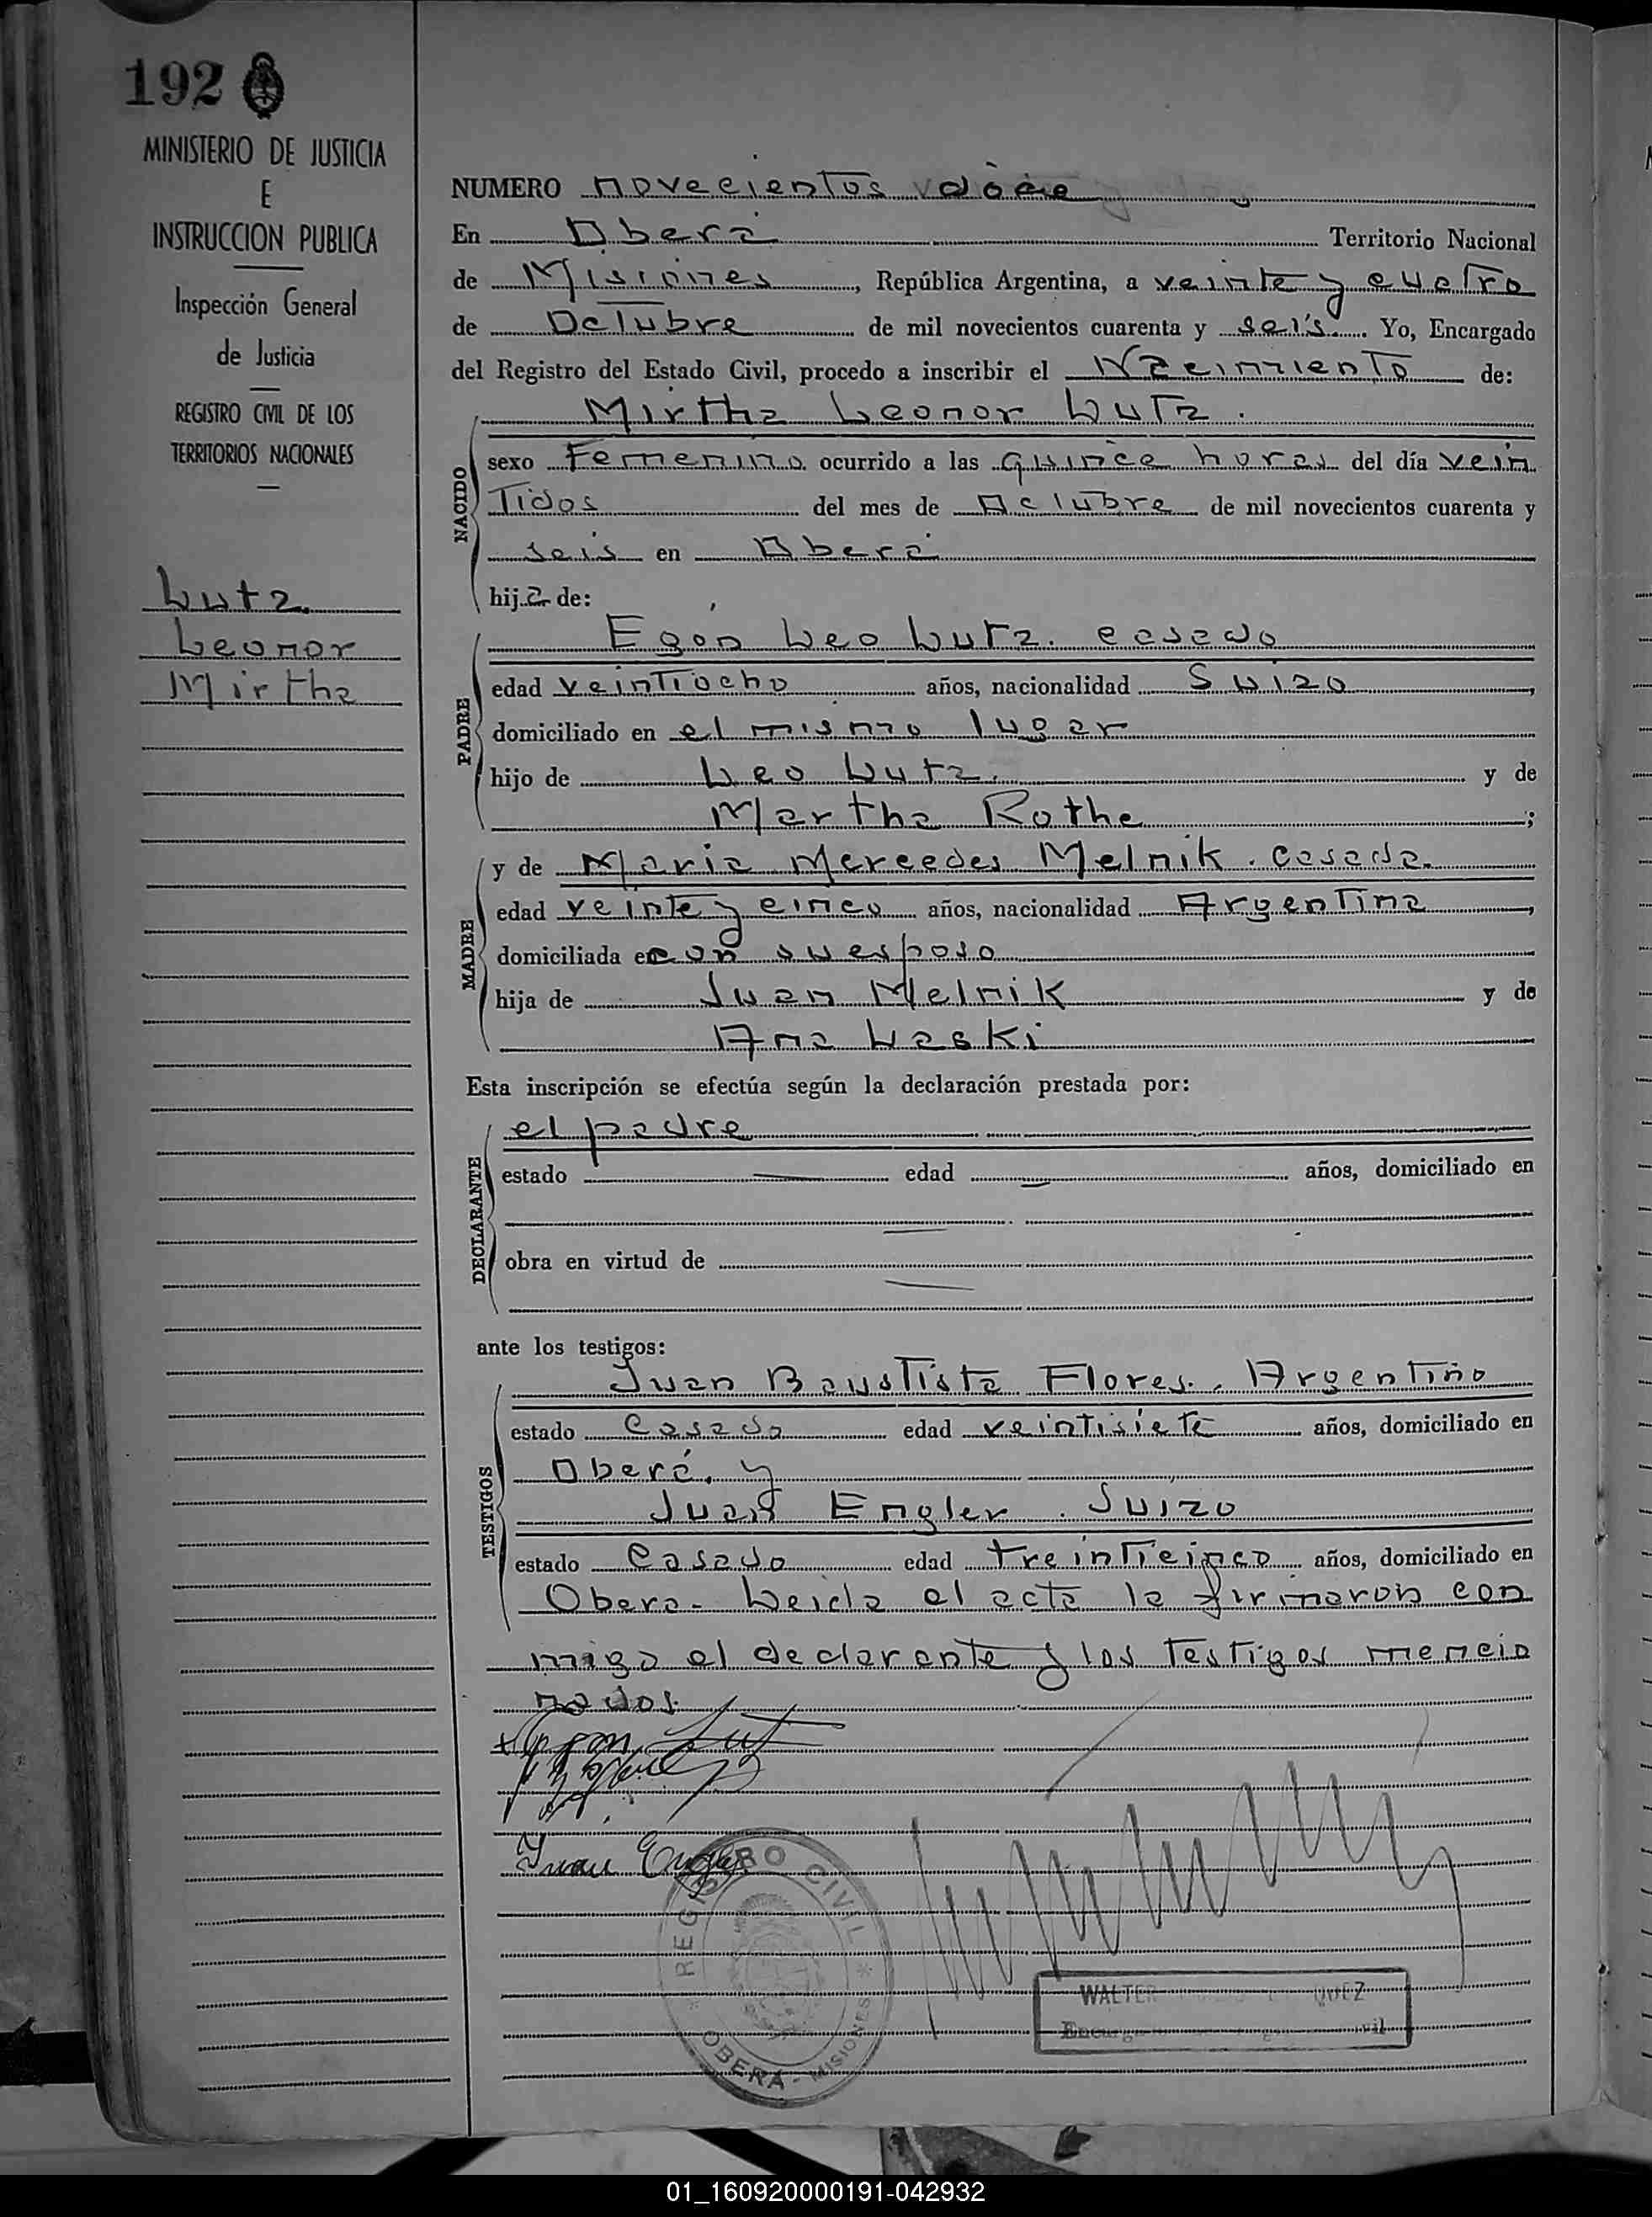 192
MINISTERIO DE JUSTICIA
E
INSTRUCCION PUBLICA
Inspección General
de Justicia
REGISTRO CIVIL DE LOS
TERRITORIOS NACIONALES
Lutz
Leonor
Mirtha
NUMERO novecientos doce
En Oberá Territorio Nacional
de Misiones, República Argentina, a veinte y cuatro
de Octubre de mil novecientos cuarenta y seis. Yo, Encargado
del Registro del Estado Civil, procedo a inscribir el Nacimiento de:
Mirtha Leonor Lutz.
NACIDO
sexo Femenino ocurrido a las quince horas del día vein
tidos del mes de Octubre de mil novecientos cuarenta y
seis en Oberá
hija de:
Egon Leo Lutz. casado
PADRE
edad veintiocho años, nacionalidad Suizo,
domiciliado en el mismo lugar
hijo de Leo Lutz. y de
Martha Rothe;
y de Maria Mercedes Melnik. casada.
MADRE
edad veinte y cinco años, nacionalidad Argentina,
domiciliada en con su esposo
hija de Juan Melnik y de
Ana Laski
Esta inscripción se efectúa según la declaración prestada por:
el padre
DECLARANTE
estado — edad — años, domiciliado en
—
obra en virtud de
—
ante los testigos:
Juan Bautista Flores. Argentino
TESTIGOS
estado Casado edad veintisiete años, domiciliado en
Oberá. y
Juan Engler. Suizo
estado Casado edad treinticinco años, domiciliado en
Obera- Leida el acta la firmaron con
migo el declarante y los testigos mencio
nados.
Egon Lutz
Juan Engler
REGISTRO CIVIL
OBERA - MISIONES
WALTER
01_160920000191-042932